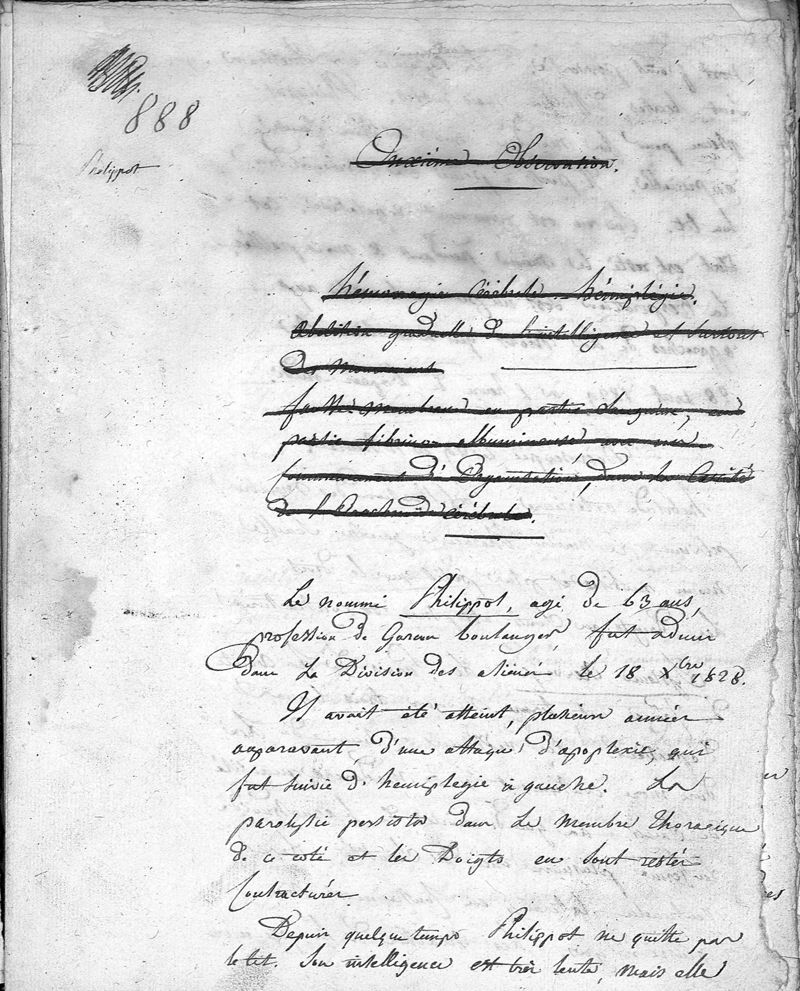 888
Philippot
Onzième Observation.
hémorragie Cérébrale - hémiplégie.
Abolition graduelle de l'intelligence et surtout
des Mouvemens
fausse membrane en partie sanguine, en
partie fibrino albumineuse, avec un
Commencement d'Organisation, dans la Cavité
de l'Arachnoïde cérébrale.
Le nommé Philippot, agé de 63 ans,
profession de Garcon boulanger, fut admis
dans la Division des aliénés le 18 Xbre 1828.
Il avait été atteint, plusieurs années
auparavant, d'une attaque d'apoplexie, qui
fut suivie d'hemiplegie à gauche. La
paralysie persista dans le membre thoracique
de ce coté et les Doigts en sont restés
Contracturés
Depuis quelque temps Philippot ne quitte pas
le lit. Son intelligence est très lente, mais elle